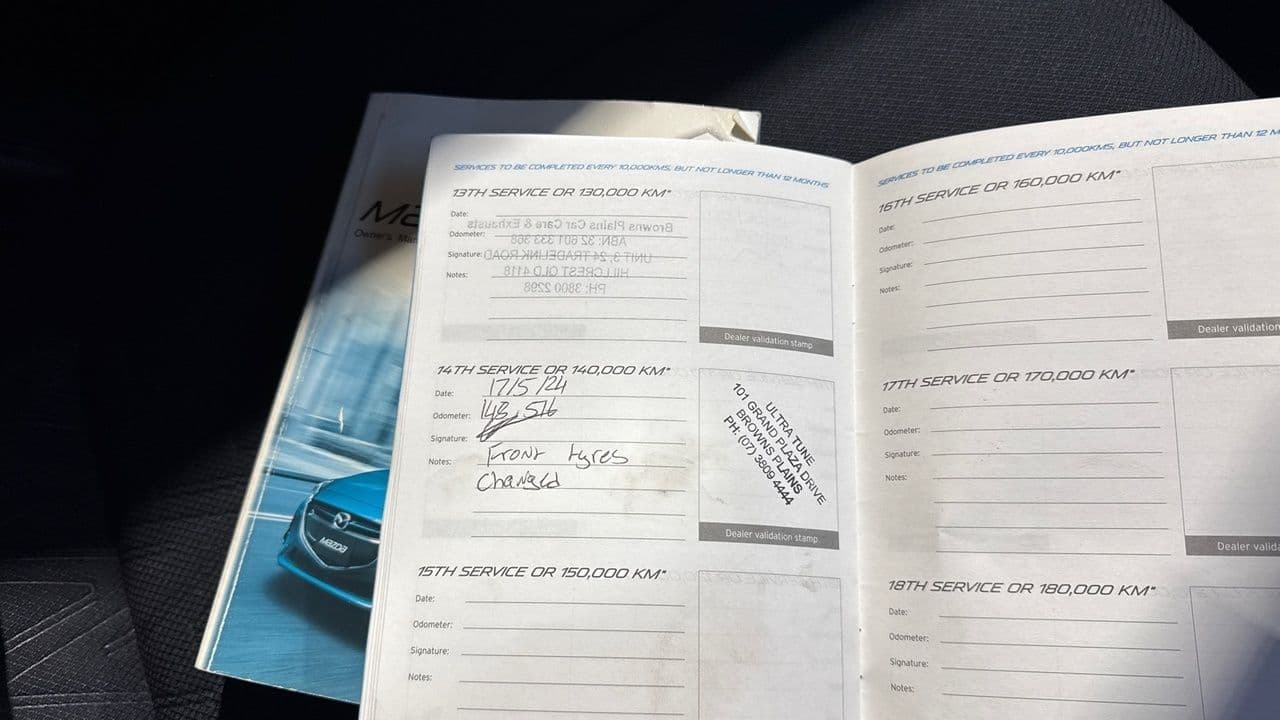 Owner's Man
mazda
SERVICES TO BE COMPLETED EVERY 10,000KMS, BUT NOT LONGER THAN 12 MONTHS
13TH SERVICE OR 130,000 KM*
Date:
Odometer:
Signature:
Notes:
Browns Plains Car Care & Exhausts
ABN: 32 601 333 368
UNIT 3, 24 TRADELINK ROAD
HILLCREST QLD 4118
PH: 3800 2298
Dealer validation stamp
14TH SERVICE OR 140,000 KM*
Date: 17/5/24
Odometer: 148,516
Signature:
Notes: Front tyres
changed
ULTRA TUNE
101 GRAND PLAZA DRIVE
BROWNS PLAINS
PH: (07) 3809 4444
Dealer validation stamp
15TH SERVICE OR 150,000 KM*
Date:
Odometer:
Signature:
Notes:
SERVICES TO BE COMPLETED EVERY 10,000KMS, BUT NOT LONGER THAN 12 M
16TH SERVICE OR 160,000 KM*
Date:
Odometer:
Signature:
Notes:
Dealer validation
17TH SERVICE OR 170,000 KM*
Date:
Odometer:
Signature:
Notes:
Dealer valid
18TH SERVICE OR 180,000 KM*
Date:
Odometer:
Signature:
Notes: